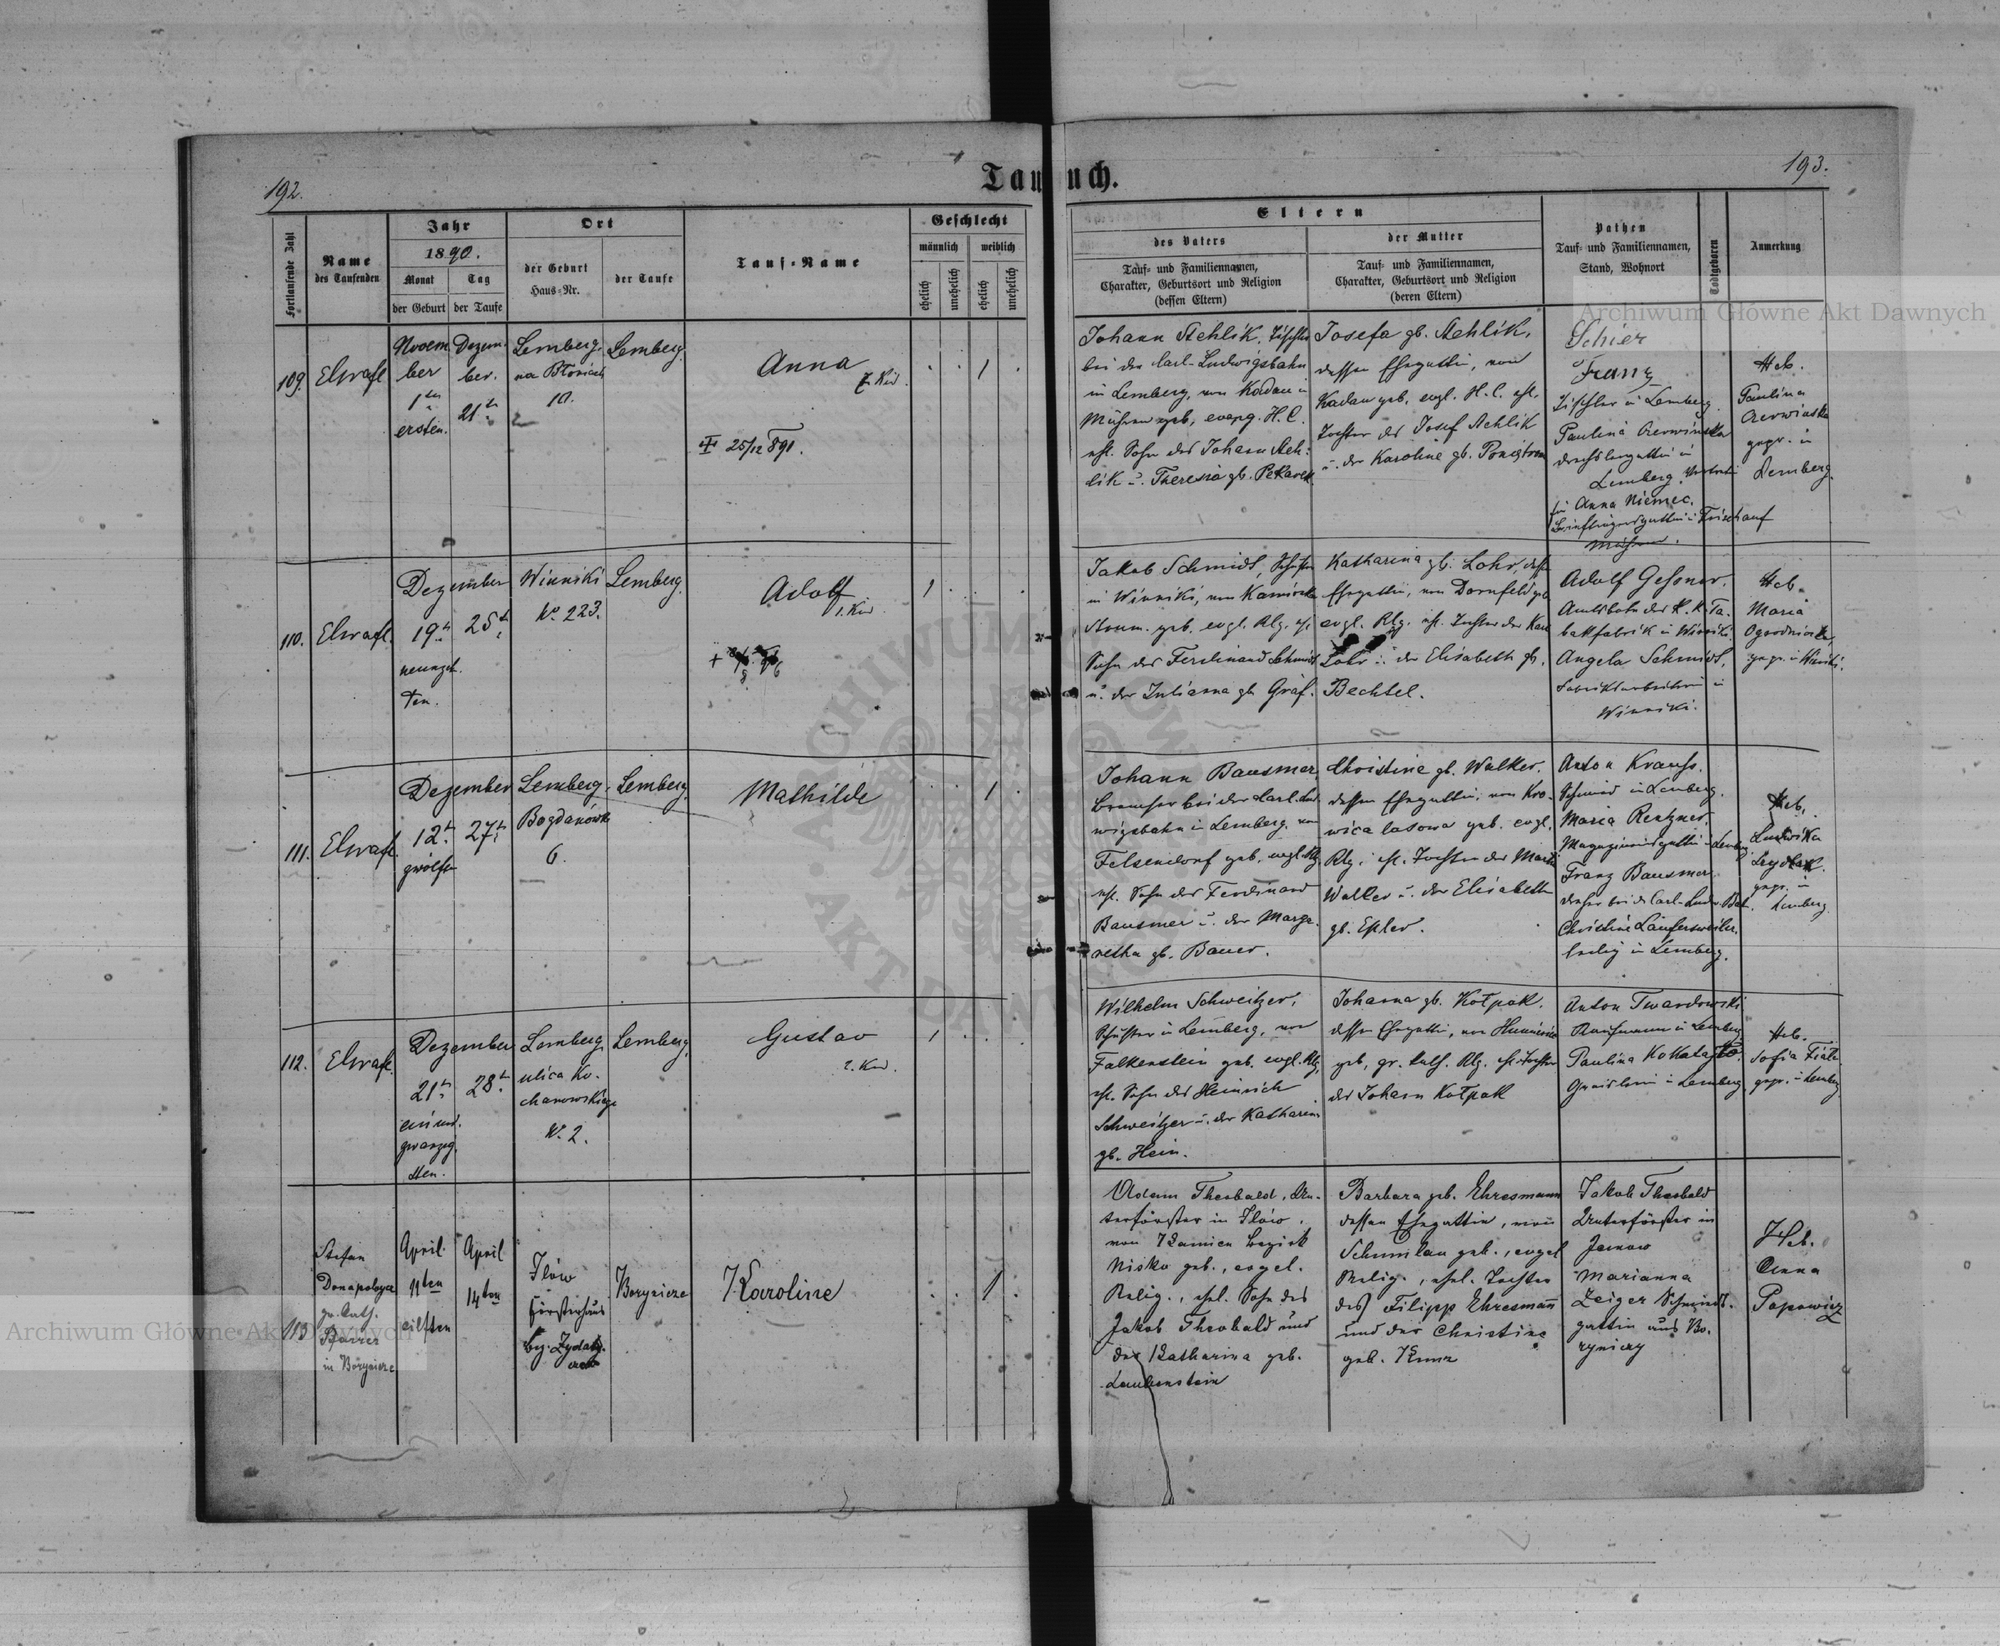 192.
Taufbuch.
193.
Fortlaufende Zahl
Name
des Taufenden
Jahr
1890.
Monat
Tag
der Geburt
der Taufe
Ort
der Geburt
Haus-Nr.
der Taufe
Tauf-Name
Geschlecht
männlich
weiblich
ehelich
unehelich
ehelich
unehelich
Eltern
des Vaters
Tauf- und Familiennamen,
Charakter, Geburtsort und Religion
(dessen Eltern)
der Mutter
Tauf- und Familiennamen,
Charakter, Geburtsort und Religion
(deren Eltern)
Pathen
Tauf- und Familiennamen,
Stand, Wohnort
Todtgeboren
Anmerkung
109.
Novem
ber
1ten
ersten.
Dezem
ber.
21ten
Lemberg.
na Błonie
10.
Lemberg.
Anna
25/12 891.
1
Johann Stehlik, Tischler
bei der Carl-Ludwigsbahn
in Lemberg, von Kadau in
Mähren geb, evang. H. C.
ehl. Sohn des Johann Steh-
lik u. Theresia gb. Pekarek
Josefa gb. Stehlik,
dessen Ehegattin, von
Kadau geb, evgl. H. C. ehl.
Tochter des Josef Stehlik
u. der Karoline gb.
Schier
Franz
Tischler in Lemberg.
Paulina Czerwinska
in
Lemberg
für Anna Niemec.
Mähren.
Heb.
Paulina
Czerwinska
gepr. in
Lemberg.
110.
Dezember
19t
neunzeh
ten.
25t
Winniki
No 223.
Lemberg.
Adolf
1. Kind
1
Jakob Schmidt, Schuster
in Winniki, von
geb. evgl. Rlg. ehl.
Sohn des Ferdinand Schmidt
u. der Julianna gb. Graf.
Katharina gb. Lohr, dessen
Ehegattin, von Dornfeld geb
evgl. Rlg. ehl. Tochter des Karl
Lohr u. der Elisabeth gb.
Bechtel.
Adolf Gessner.
Amtsbote der K. K. Ta-
bakfabrik in Winniki
Angela Schmidt,
Fabriksarbeiterin in
Winniki.
Heb.
Maria
Ogrodnicka
gepr. in Winniki.
111.
Dezember
12t
zwölften
27t
Lemberg.
Bogdanówka
6.
Lemberg.
Mathilde
1
Johann Bausmer,
Bremser bei der Carl-Lud-
wigsbahn in Lemberg, von
Felsendorf geb, evgl. Rlg
ehl. Sohn des Ferdinand
Bausmer u. der Marga-
retha gb. Bauer.
Christine gb. Walker,
dessen Ehegattin, von Kro-
wica lasowa geb. evgl.
Rlg, ehl. Tochter des Martin
Walker u. der Elisabeth
gb. Epler.
Anton Krauss.
Schmied in Lemberg.
Maria Rentzner.
Magazineursgattin in Lemberg
Franz Bausmer
Christine Laufersweiler
ledig in Lemberg.
Heb.
Ludwika
gepr. in
Lemberg.
112.
Dezember
21t
ein und
zwanzig
sten.
28t
Lemberg
ulica Ko-
chanowskiego
No 2.
Lemberg.
Gustav
2. Kind.
1
Wilhelm Schweitzer,
Schuster in Lemberg, von
Falkenstein geb. evgl. Rlg,
ehl. Sohn des Heinrich
Schweitzer u. der Katharina
gb. Hein.
Johanna gb. Kotpak,
dessen Ehegattin, von
geb, gr. kath. Rlg. ehl. Tochter
des Johann Kotpak
Anton Twardowski
Kaufmann in Lemberg
Paulina
in Lemberg
Heb.
Sofia
gepr. in Lemberg
113
Stefan
gr. Cath.
Pfarrer
in Borynicze
April
11ten
eilften
April
14ten
Iłów
Försterhaus
Borynicze
Karoline
1
Adam Theobald, Un-
terförster in Iłów,
von Kamien Bezirk
Nisko geb., evgel.
Relig., ehel. Sohn des
Jakob Theobald und
der Katharina geb.
Laubenstein
Barbara geb. Ehresmann
dessen Ehegattin, von
Schumlau geb., evgel
Relig., ehel. Tochter
des Filipp Ehresmann
und der Christine
geb. Kunz
Jakob Theobald
Unterförster in
Janow
Marianna
Zeiger Schmieds-
gattin aus Bo-
ryniczy
Heb.
Anna
Papowicz
Archiwum Główne Akt Dawnych
Archiwum Główne Akt Dawnych